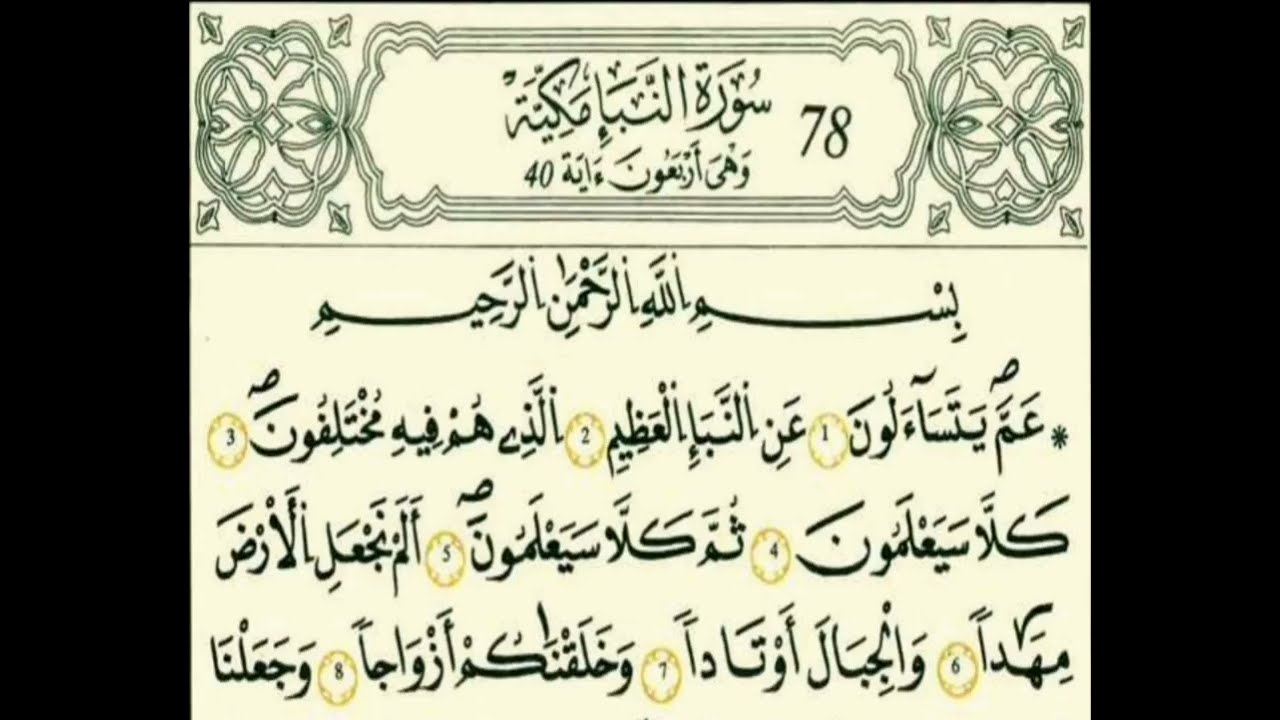 سُورَةُ النَّبَإِ مَكِّيَّةٌ 78
وَهْىَ أَرْبَعُونَ ءَايَة 40
بِسْمِ اِ۬للَّهِ اِ۬لرَّحْمَٰنِ اِ۬لرَّحِيمِ
* عَمَّ يَتَسَآءَلُونَۖ 1 عَنِ اِ۬لنَّبَإِ اِ۬لْعَظِيمِ 2 اِ۬لَّذِے هُمْ فِيهِ مُخْتَلِفُونَۖ 3
كَلَّا سَيَعْلَمُونَ 4 ثُمَّ كَلَّا سَيَعْلَمُونَۖ 5 أَلَمْ نَجْعَلِ اِ۬لْأَرْضَ
مِهَٰداً 6 وَالْجِبَالَ أَوْتَاداً 7 وَخَلَقْنَٰكُمْ أَزْوَاجاً 8 وَجَعَلْنَا